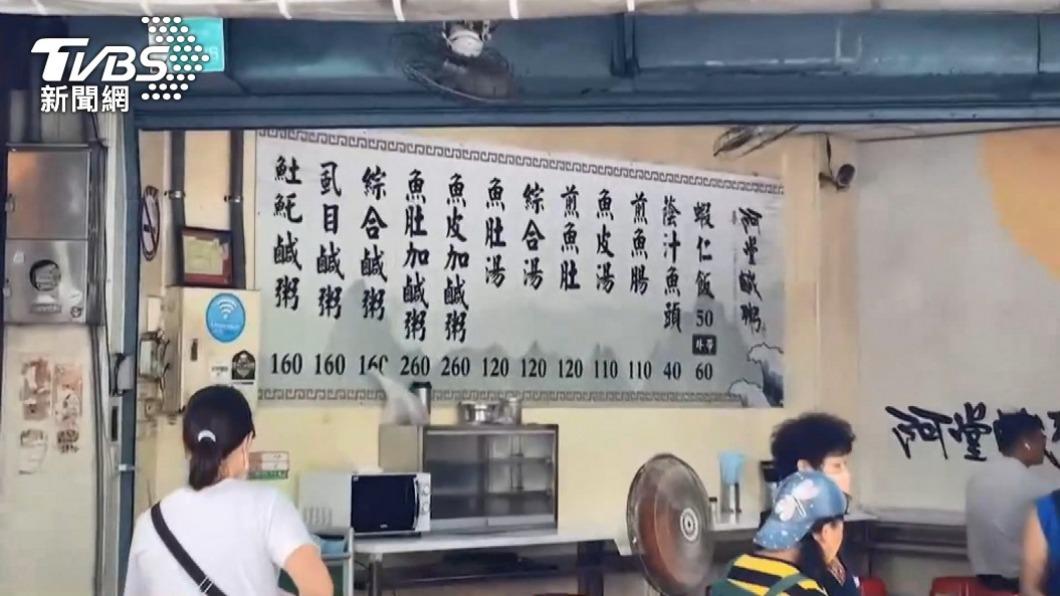 TVBS
新聞網
阿堂鹹粥
蝦仁飯 50
外帶 60
蔭汁魚頭 40
煎魚腸 110
魚皮湯 110
煎魚肚 120
綜合湯 120
魚肚湯 120
魚皮加鹹粥 260
魚肚加鹹粥 260
綜合鹹粥 160
虱目鹹粥 160
魠魠鹹粥 160
阿堂鹹